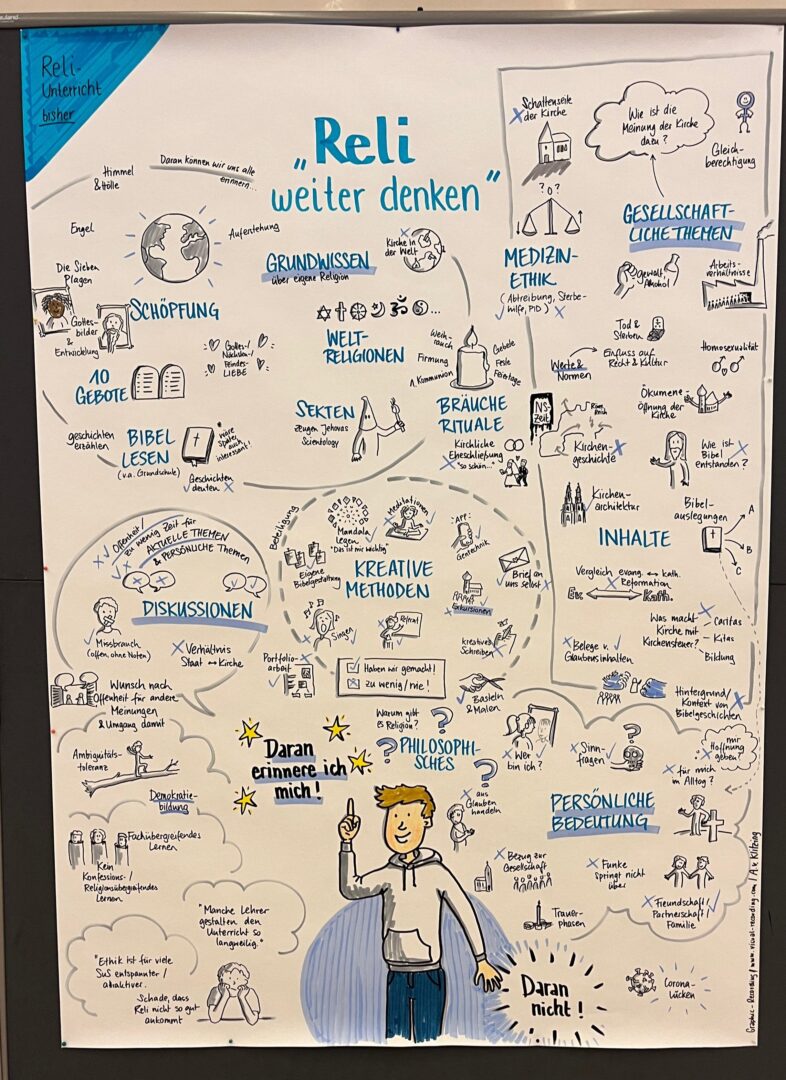 Reli-
Unterricht
bisher
"Reli
weiter denken"
Himmel
& Hölle
Daran können wir uns alle
erinnern...
Engel
Auferstehung
Die Sieben
Plagen
SCHÖPFUNG
Gottes-
bilder
&
Entwicklung
10
GEBOTE
Gottes-/
Nächsten-/
Feindes-
LIEBE
geschichten
erzählen
BIBEL
LESEN
(v.a. Grundschule)
wäre
später
auch
interessant!
✓ Geschichten
deuten ✗
GRUNDWISSEN
über eigene Religion
✗
Kirche in
der Welt
WELT-
RELIGIONEN
SEKTEN
Zeugen Jehovas
Scientology
Weih-
rauch
Firmung
1. Kommunion
Gebete
Feste
Feiertage
BRÄUCHE
RITUALE
Kirchliche
Eheschließung
✗ "so schön..."
✗ Schattenseite
der Kirche
? o ?
MEDIZIN-
ETHIK
(Abtreibung, Sterbe-
✓ hilfe, PID) ✗
Wie ist die
Meinung der Kirche
dazu?
Gleich-
berechtigung
GESELLSCHAFT-
LICHE THEMEN
Gewalt
Alkohol
Arbeits-
verhältnisse
Tod &
Sterben
Werte &
Normen
Einfluss auf
Recht & Kultur
Homosexualität
Ökumene-
Öffnung der
Kirche
NS-
Zeit
Röm.
Reich
Kirchen-
geschichte ✗
Wie ist
Bibel
entstanden?
Kirchen-
architektur
Bibel-
auslegungen
A
B
C
INHALTE
Vergleich evang. ↔ kath.
Reformation
Ev.
Kath.
Was macht
Kirche mit
Kirchensteuer?
✗ Caritas
Kitas
Bildung
✗ Belege v. ✓
Glaubensinhalten
Hintergrund/
Kontext von
Bibelgeschichten
✗
✗ ✓ Offenheit/
zu wenig Zeit für
✓ ✗ AKTUELLE THEMEN
& PERSÖNLICHE Themen
DISKUSSIONEN
✓ Missbrauch
(offen, ohne Noten)
✗ Verhältnis
Staat ↔ Kirche
Wunsch nach
Offenheit für andere
Meinungen
& Umgang damit
Beteiligung
Mandala
legen
"Das ist mir wichtig"
Meditationen
APP:
Gentechnik
Eigene
Bibelgestaltung
KREATIVE
METHODEN
✓ Brief an
uns selbst ✗
Exkursionen
Singen
Referat
kreatives
Schreiben
Portfolio-
arbeit
✓
☑ Haben wir gemacht!
☒ zu wenig/nie!
✓ Basteln
& Malen
Ambiguitäts-
toleranz
Demokratie-
bildung
Fachübergreifendes
Lernen
Kein
Konfessions-/
Religionsübergreifendes
Lernen
"Manche Lehrer
gestalten den
Unterricht so
langweilig."
"Ethik ist für viele
SuS entspannter/
attraktiver.
Schade, dass
Reli nicht so gut
ankommt
Daran
erinnere ich
mich!
Warum gibt
es Religion?
PHILOSOPHI-
SCHES
✗ Wer ✓
bin ich?
✗ aus
Glauben
handeln
✗ Bezug zur
Gesellschaft
Trauer-
phasen
✗ Sinn- ✓
fragen
mir
Hoffnung
✗ geben?
✗ für mich
im Alltag?
PERSÖNLICHE
BEDEUTUNG
✗ Funke
springt nicht
über
✗ Freundschaft/ ✓
Partnerschaft/
Familie
Daran
nicht!
Corona-
Lücken
Graphic-Recording / www.visual-recording.com / A. v. Klitzing